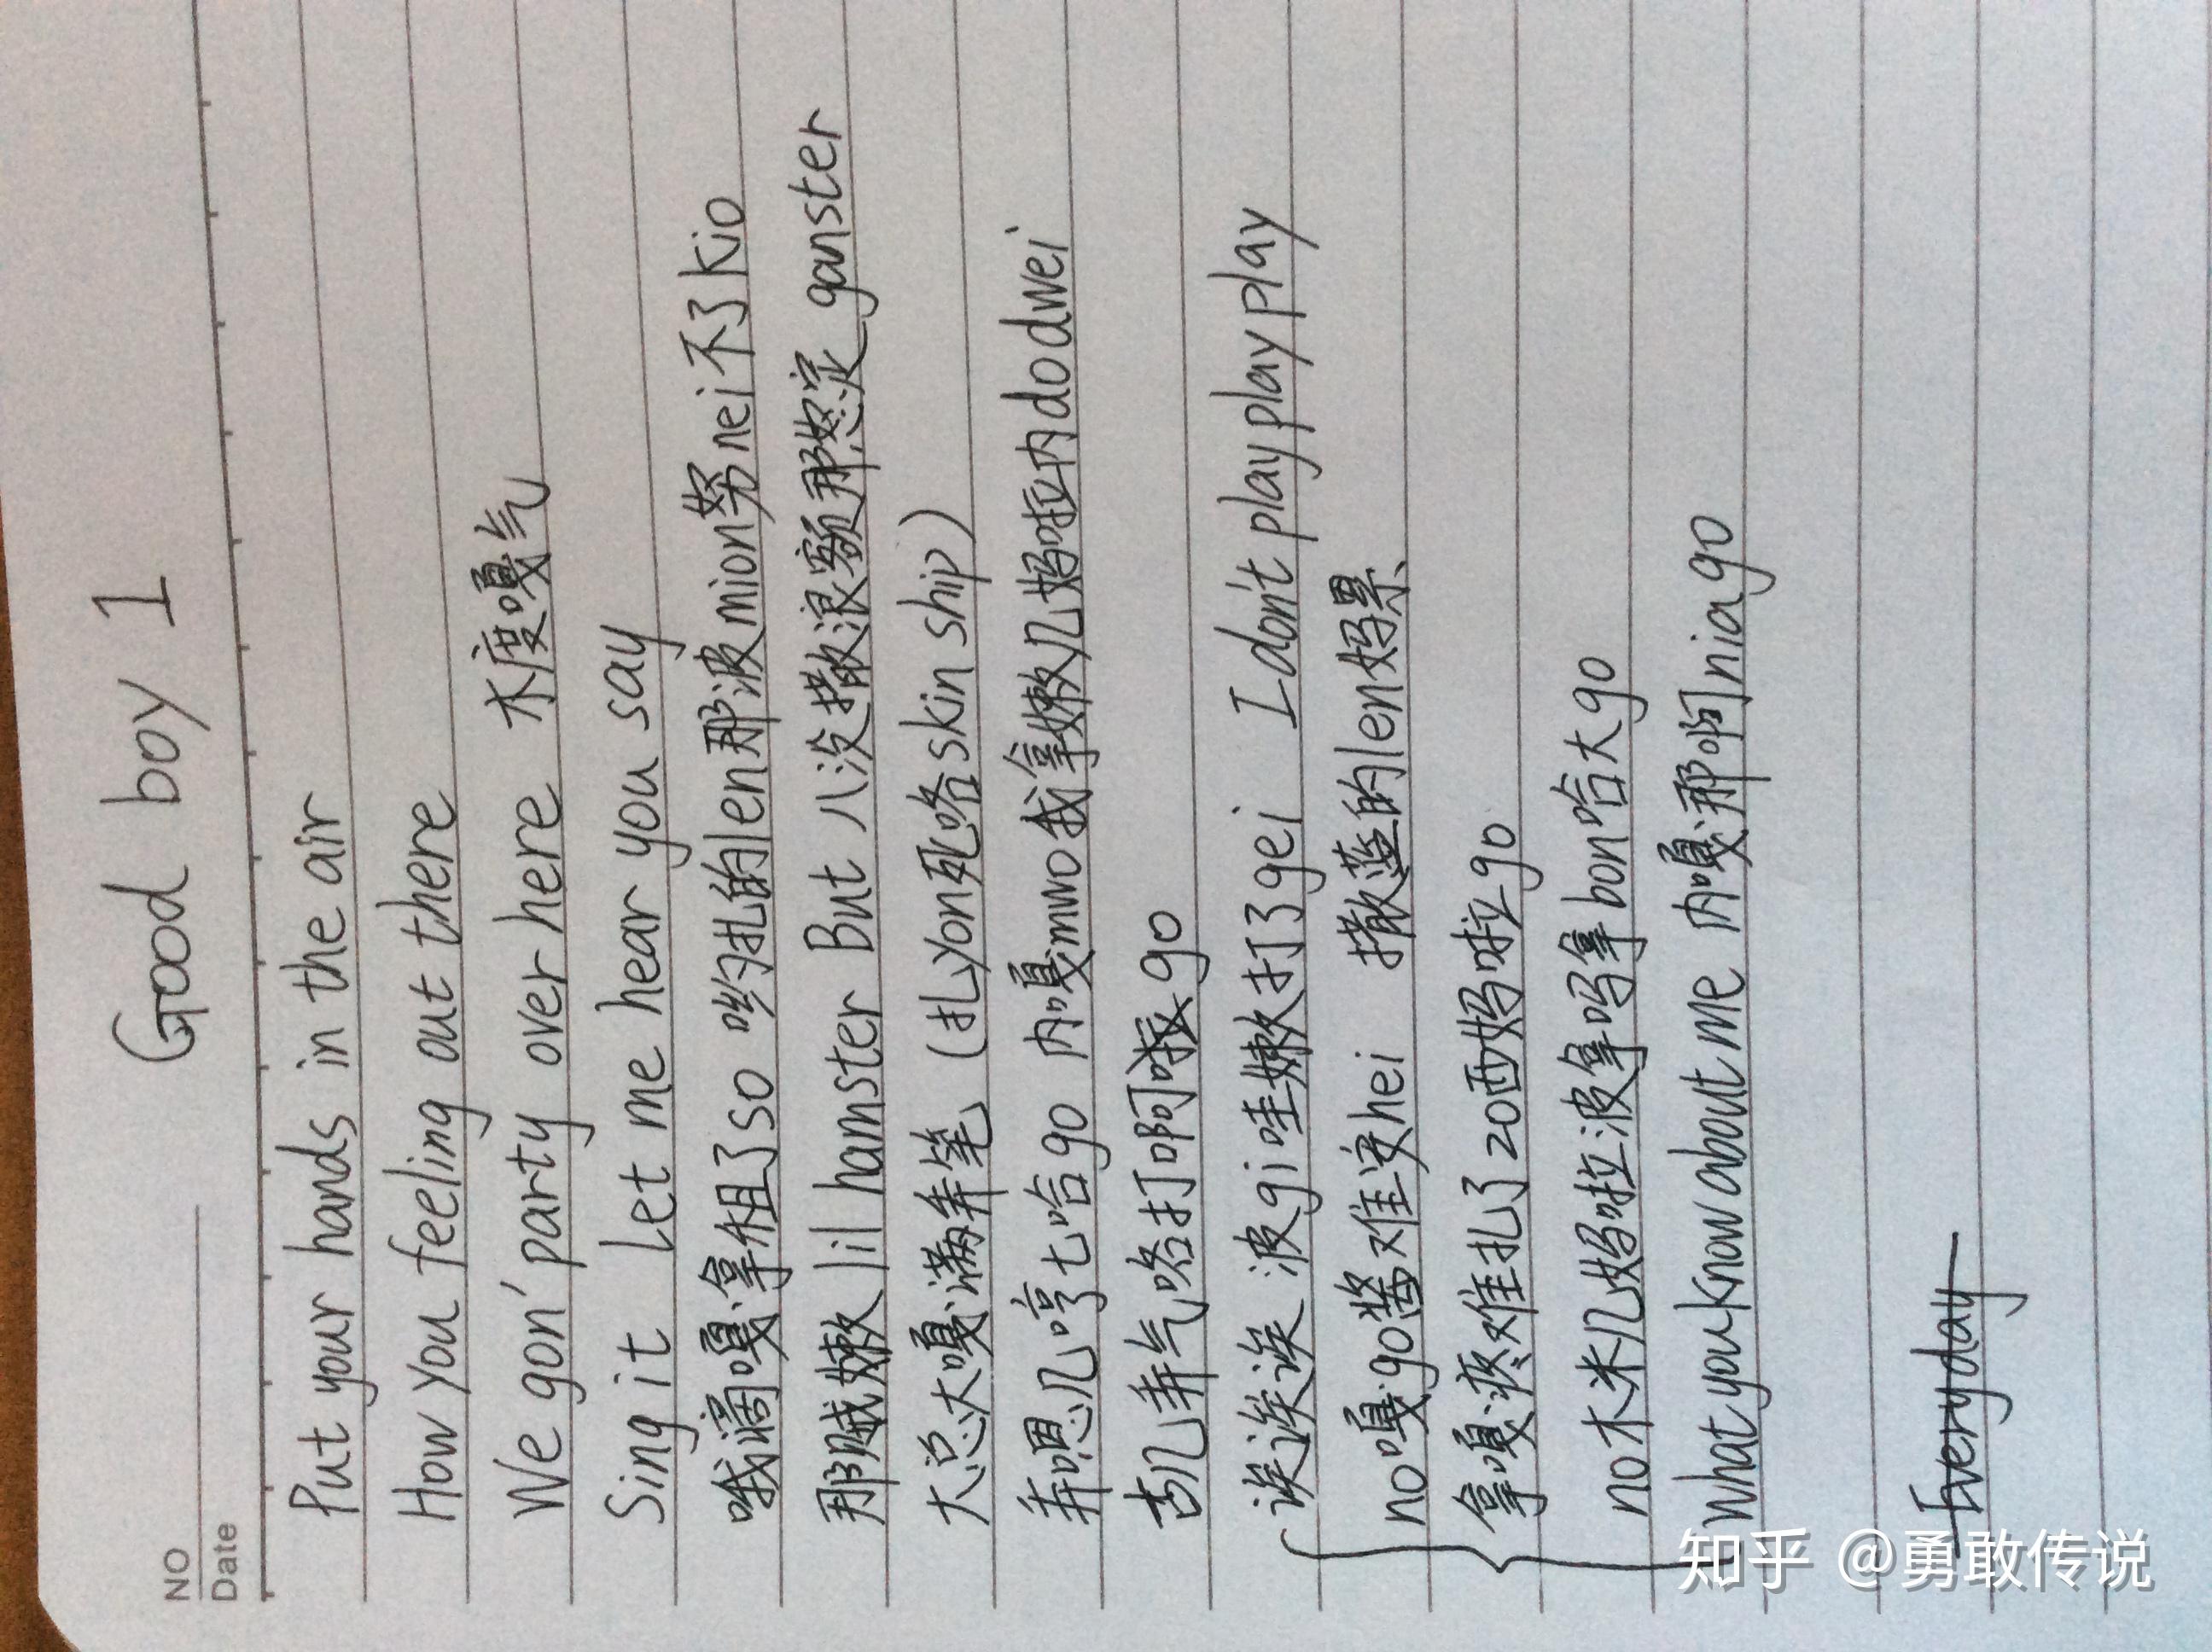 NO
Date
Good boy 1
Put your hands in the air
How you feeling out there
We gon' party over here 木度嘎气
Sing it Let me hear you say
哦滴嘎拿俎了so 哟扎的len那波mion努nei不了kio
那贼嫩 lil hamster But 八没撒浪额那怒定 ganster
大总大嘎满弄笔 (扎yon死咯skin ship)
弄嗯几哼七哈go 内嘎mwo我拿嫩几妈啦内dodwei
古几弄气咯打啊 go
诶诶诶 波gi哇嫩打了gei I don't play play play
no嘎go酱难安hei 撒蓝的len妈累
拿嘎疼难扎了zo西妈啦go
no木米几妈啦波拿吗拿bon哈大go
What you know about me 内嘎那啊niago
Everyday
知乎 @勇敢传说